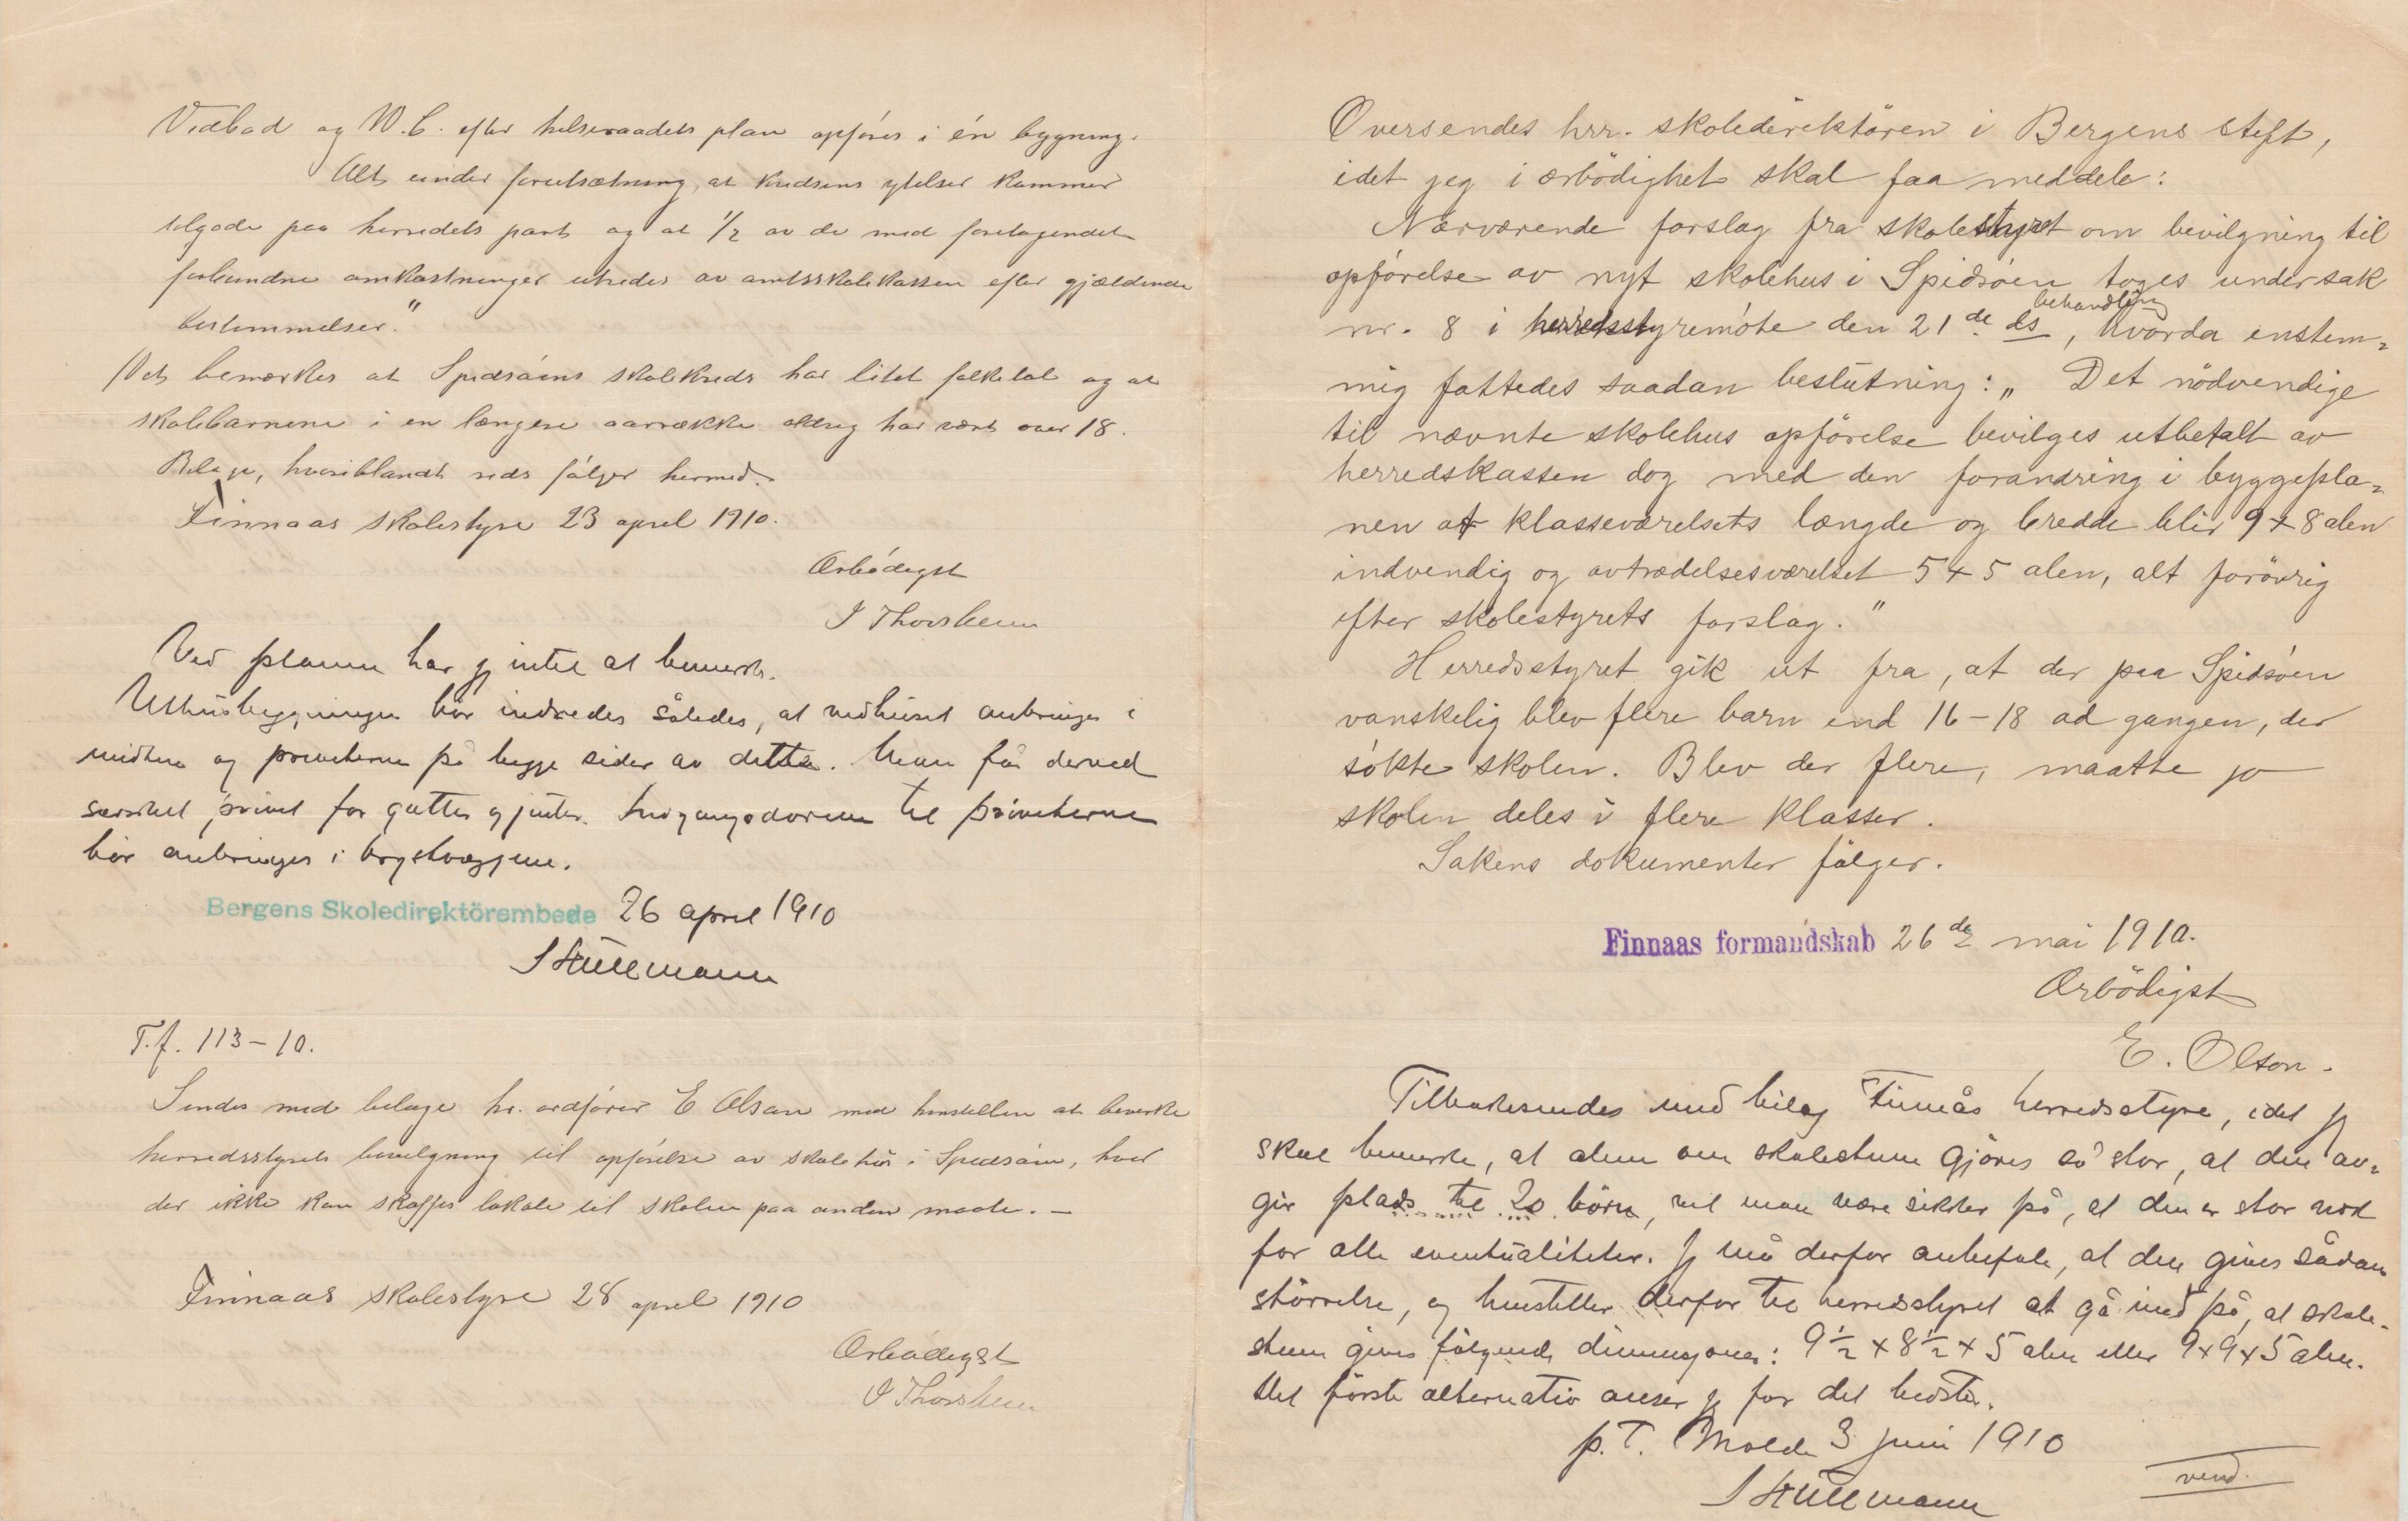 Vedbod og W.C. efter helseraadets plan opføres i én bygning.
Alt under forutsætning, at kredsens ytelser kommer
tilgode paa herredets part og at 1/2 av de med foretagendet
forbundne omkostninger utredes av amtsskolekassen efter gjældende
bestemmelser."
Det bemerkes at Spidsøens skolekreds har litet folketal og at
skolebarnene i en længere aarrække aldrig har vært over 18.
Bilage, hvoriblandt rids følger hermed.
Finnaas skolestyre 23 april 1910.
Ærbødigst
J Thorsheim
Ved planen har jeg intet at bemerke.
Uthusbygningen bör indredes således, at vedhuset anbringes i
midten og priveterne på begge sider av dette. Man får derved
særskilt privet for gutter og jenter. Indgangsdørene til priveterne
bör anbringes i brystvæggene.
Bergens Skoledirektörembede 26 april 1910
T.f. 113-10.
Sendes med bilage hr. ordfører E Olson med henstillen at bevirke
herredsstyrets bevilgning til opførelse av skolehus i Spidsøen, hvor
der ikke kan skaffes lokale til skolen paa anden maate. —
Finnaas skolestyre 28 april 1910
Ærbødigst
J Thorsheim
Oversendes hrr. skoledirektören i Bergens stift,
idet jeg i ærbödighet skal faa meddele:
Nærværende forslag fra skolestyret om bevilgning til
opførelse av nyt skolehus i Spidsøen toges under sak
behandling
nr. 8 i herredsstyremöte den 21de ds, hvorda enstem=
mig fattedes saadan beslutning: „Det nödvendige
til nævnte skolehus opförelse bevilges utbetalt av
herredskassen dog med den forandring i byggepla=
nen at klasseværelsets længde og bredde blir 9 x 8 alen
indvendig og avtrædelsesværelset 5 x 5 alen, alt forövrig
efter skolestyrets forslag."
Herredsstyret gik ut fra, at der paa Spidsöen
vanskelig blev flere barn end 16-18 ad gangen, der
sökte skolen. Blev der flere, maatte jo
skolen deles i flere klasser.
Sakens dokumenter fölger.
Finnaas formandskab 26de mai 1910.
Ærbödigst
E. Olson.
Tilbakesendes med bilag Finnås herredsstyre, idet jeg
skal bemerke, at alene om skolestuen gjöres så stor, at den av=
gir plads til 20 börn, vil man være sikker på, at den er stor nok
for alle eventualiteter. Jeg må derfor anbefale, at den gives sådan
störrelse, og henstiller derfor til herredsstyret at gå ind på, at skole-
stuen gives fölgende dimensjoner: 9½ x 8½ x 5 alen eller 9x9x5 alen.
Det förste alternativ anser jeg for det bedste.
p.T. Molde 3 juni 1910
vend.